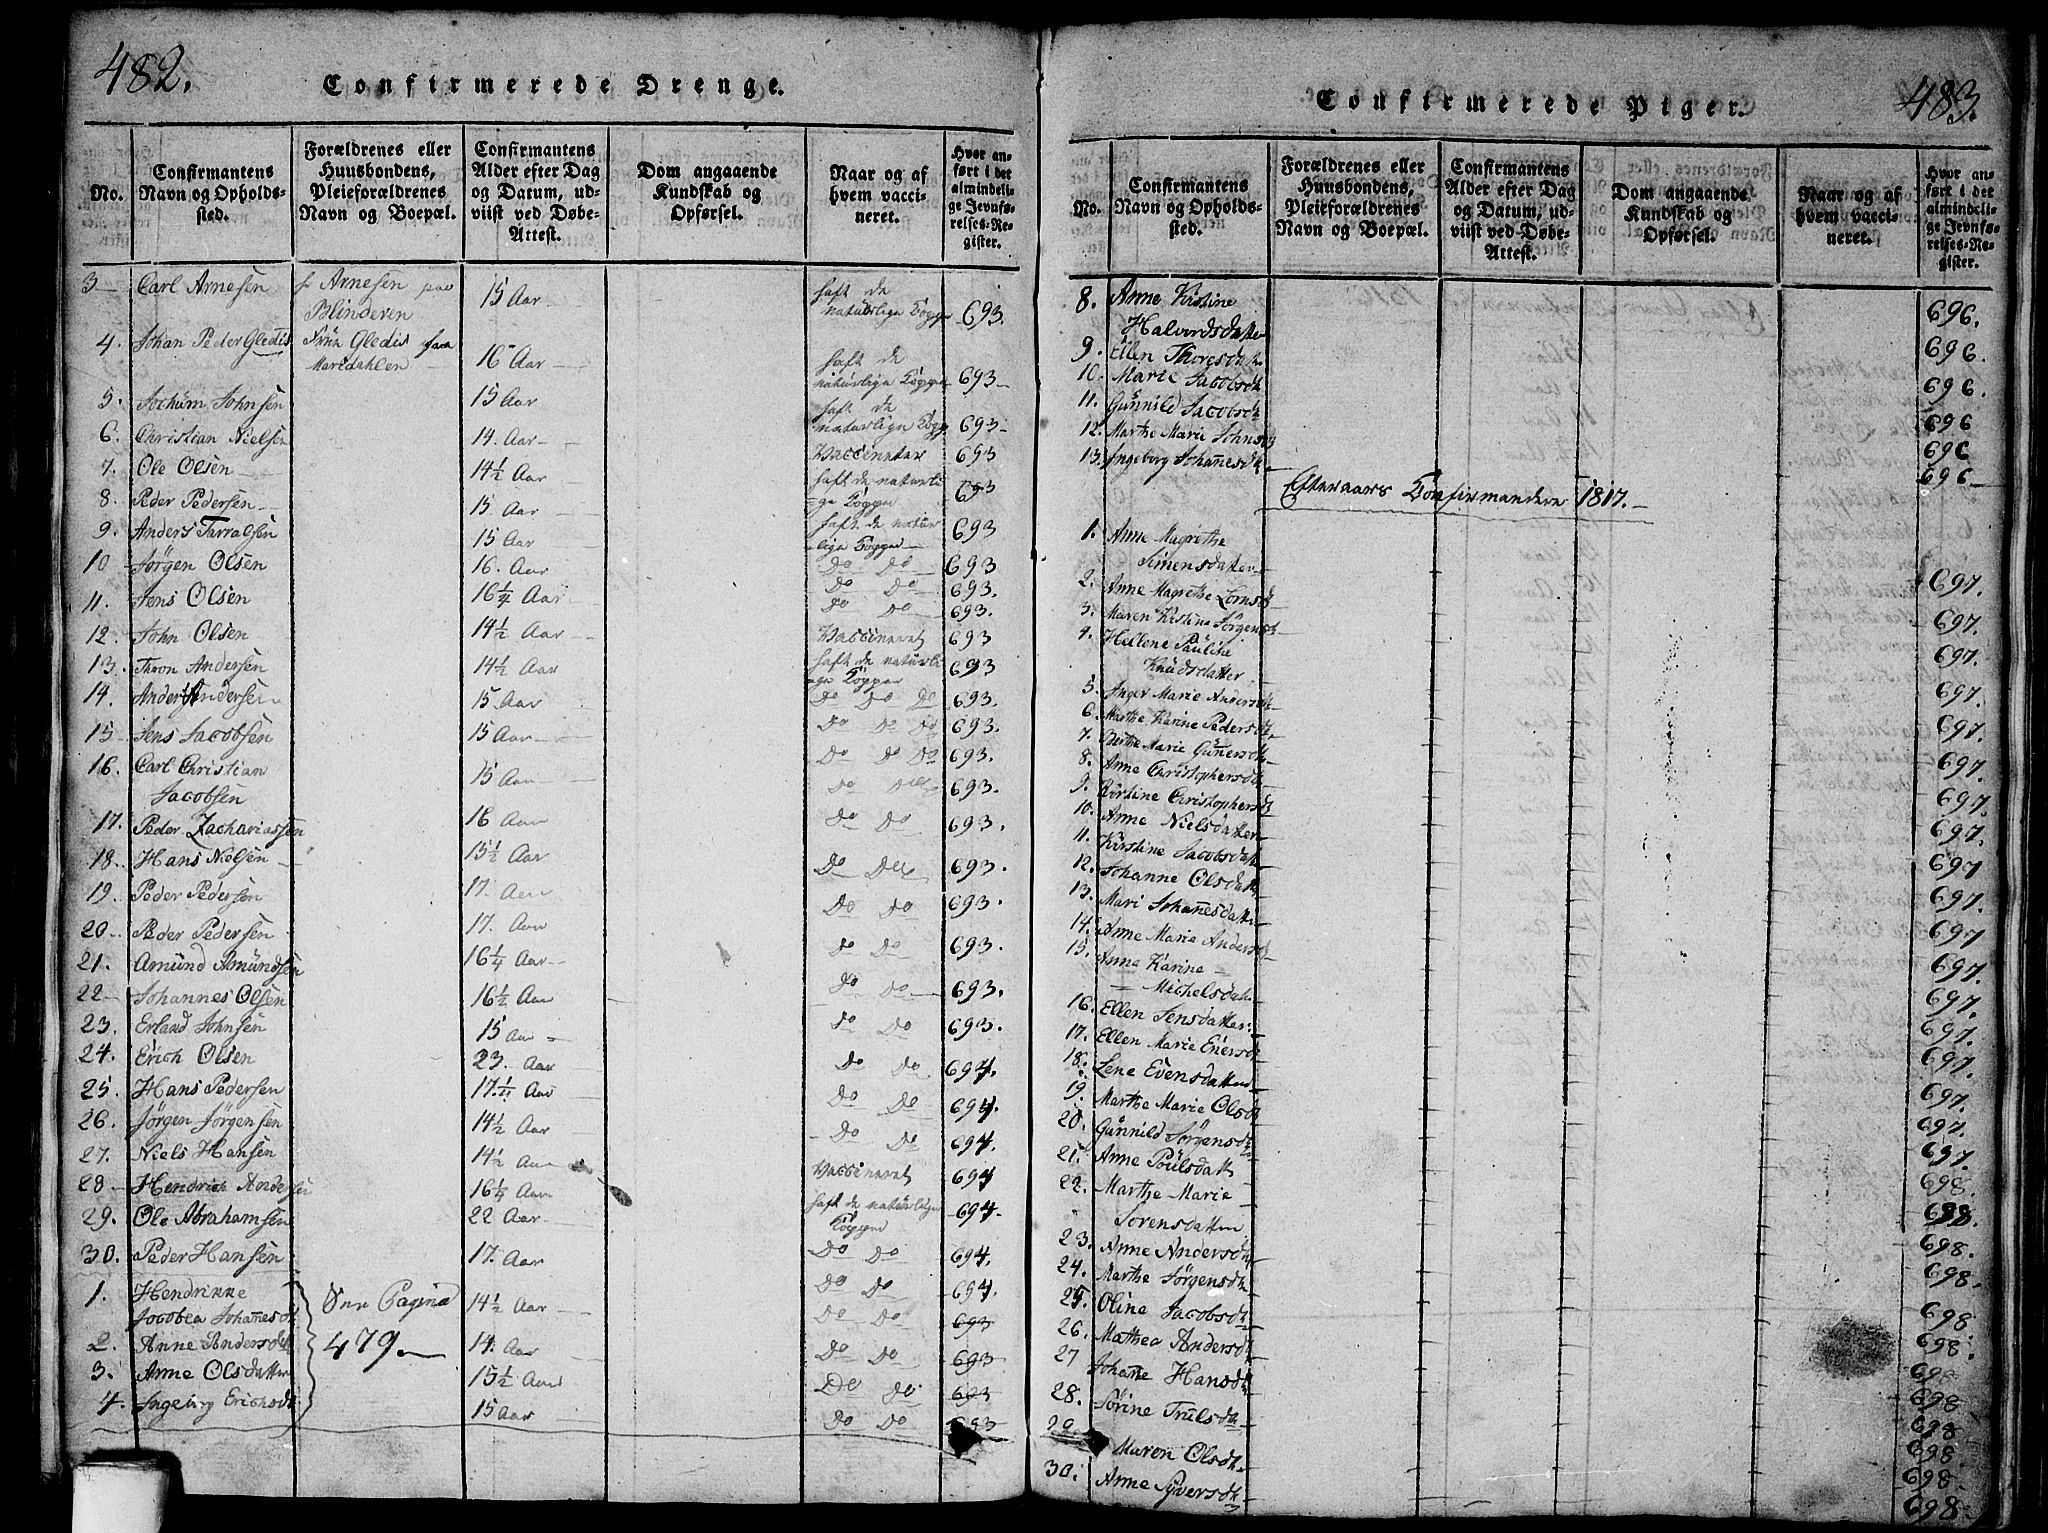 482.
Confirmerede Drenge.
No.
Confirmantens Navn og Opholdssted.
Forældrenes eller Huusbondens, Pleieforældrenes Navn og Boepæl.
Confirmantens Alder efter Dag og Datum, udviist ved Døbe-Attest.
Dom angaaende Kundskab og Opførsel.
Naar og af hvem vaccineret.
Hvor anført i det almindelige Jevnførelses-Register.
3 Carl Arnesen Arnesen paa Blinderen 15 Aar haft de naturlige Kopper 693.
4. Johan Peder Gledis Gledis Maridahlen 16 Aar haft de naturlige Kopper 693
5. Jochum Johnsen 15 Aar haft de naturlige Kopper 693
6. Christian Nielsen 14. Aar 693
7. Ole Olsen 14½ Aar haft de naturlige Kopper 693
8. Peder Pedersen 15. Aar haft de naturlige Kopper 693
9. Anders Tarralsen 15 Aar Do Do 693
10 Jörgen Olsen 16. Aar Do Do 693.
11. Jens Olsen 16¼ Aar Do Do 693.
12. John Olsen 14½ Aar Vaccineret 693
13. Thron Andersen 14½ Aar haft de naturlige Kopper 693
14. Anders Andersen 15 Aar Do Do Do 693.
15 Jens Jacobsen 15 Aar Do Do 693.
16. Carl Christian Jacobsen 15 Aar Do Do Do 693.
17. Peder Zachariassen 16 Aar Do 693.
18. Hans Nielsen 15½ Aar Do Do 693.
19. Peder Pedersen 17. Aar Do 693.
20. Peder Pedersen 17. Aar Do Do 693.
21. Amünd Amündsen 16¼ Aar Do Do 693.
22 Johannes Olsen 16½ Aar Do Do 693.
23. Erland Johnsen 15 Aar Do Do 693.
24. Erich Olsen 23. Aar Do Do 694.
25. Hans Pedersen 17¼ Aar Do Do 694.
26. Jörgen Jörgensen 14½ Aar Do Do 694.
27. Niels Hansen 14½ Aar Vaccineret 694
28 Hendrich Andersen 16¼ Aar haft de naturlige Kopper 694.
29. Ole Abrahamsen 22 Aar Do Do 694.
30. Peder Hansen 17. Aar Do Do 694.
1. Hendrikke Jacobea Johannesd. 14½ Aar Do Do 693
2. Anne Andersd. 14. Aar Do Do 693
3. Anne Olsdatter 15½ Aar Do Do 693
4. Ingeborg Erichsd. 15 Aar Do Do 693
Pagina 479.
483.
Confirmerede Piger.
No.
Confirmantens Navn og Opholdssted.
Forældrenes eller Huusbondens, Pleieforældrenes Navn og Boepæl.
Confirmantens Alder efter Dag og Datum, udviist ved Døbe-Attest.
Dom angaaende Kundskab og Opførsel.
Naar og af hvem vaccineret.
Hvor anført i det almindelige Jevnførelses-Register.
8. Anne Kirstine Halvordsdatter 696.
9. Ellen Thoresdatter 696.
10. Marie Jacobsd. 696.
11. Günnild Jacobsd. 696
12. Marthe Marie Johnsd. 696
13. Ingeborg Johannesd. 696
Efteraars Confirmandere 1817.
1. Anne Magrethe Simensdatter 697.
2. Anne Magrethe 697.
3. Maren Kirstine Jörgensd. 697.
4. Hellene Pauline Knüdsdatter 697.
5. Inger Marie Andersd. 697.
6. Marthe Karine Pedersd. 697.
7. Berthe Marie Günersd. 697.
8. Anne Christophersd. 697.
9. Kirstine Christophersd. 697
10. Anne Nielsdatter 697.
11. Kirstine Jacobsd. 697
12. Johanne Olsdatter 697.
13. Mari Johannesdatter 697.
14. Anne Marie Andersd. 697.
15. Anne Karine Michelsdatter 697.
16. Ellen Jensdatter 697.
17. Ellen Marie 697.
18. Lene Evensdatter 697.
19. Marthe Marie Olsd. 698.
20. Günnild Jörgensd. 698.
21. Anne Poulsdatter 698.
22. Marthe Marie Sorensdatter 698.
23. Anne Andersd. 698
24. Marthe Jörgensd. 698.
25. Oline Jacobsd. 698
26. Mathea Andersd. 698
27 Johanne Hansd. 698
28. Sörine Trulsd. 698.
29 Maren Olsd. 698.
30. Anne Syversd. 698.